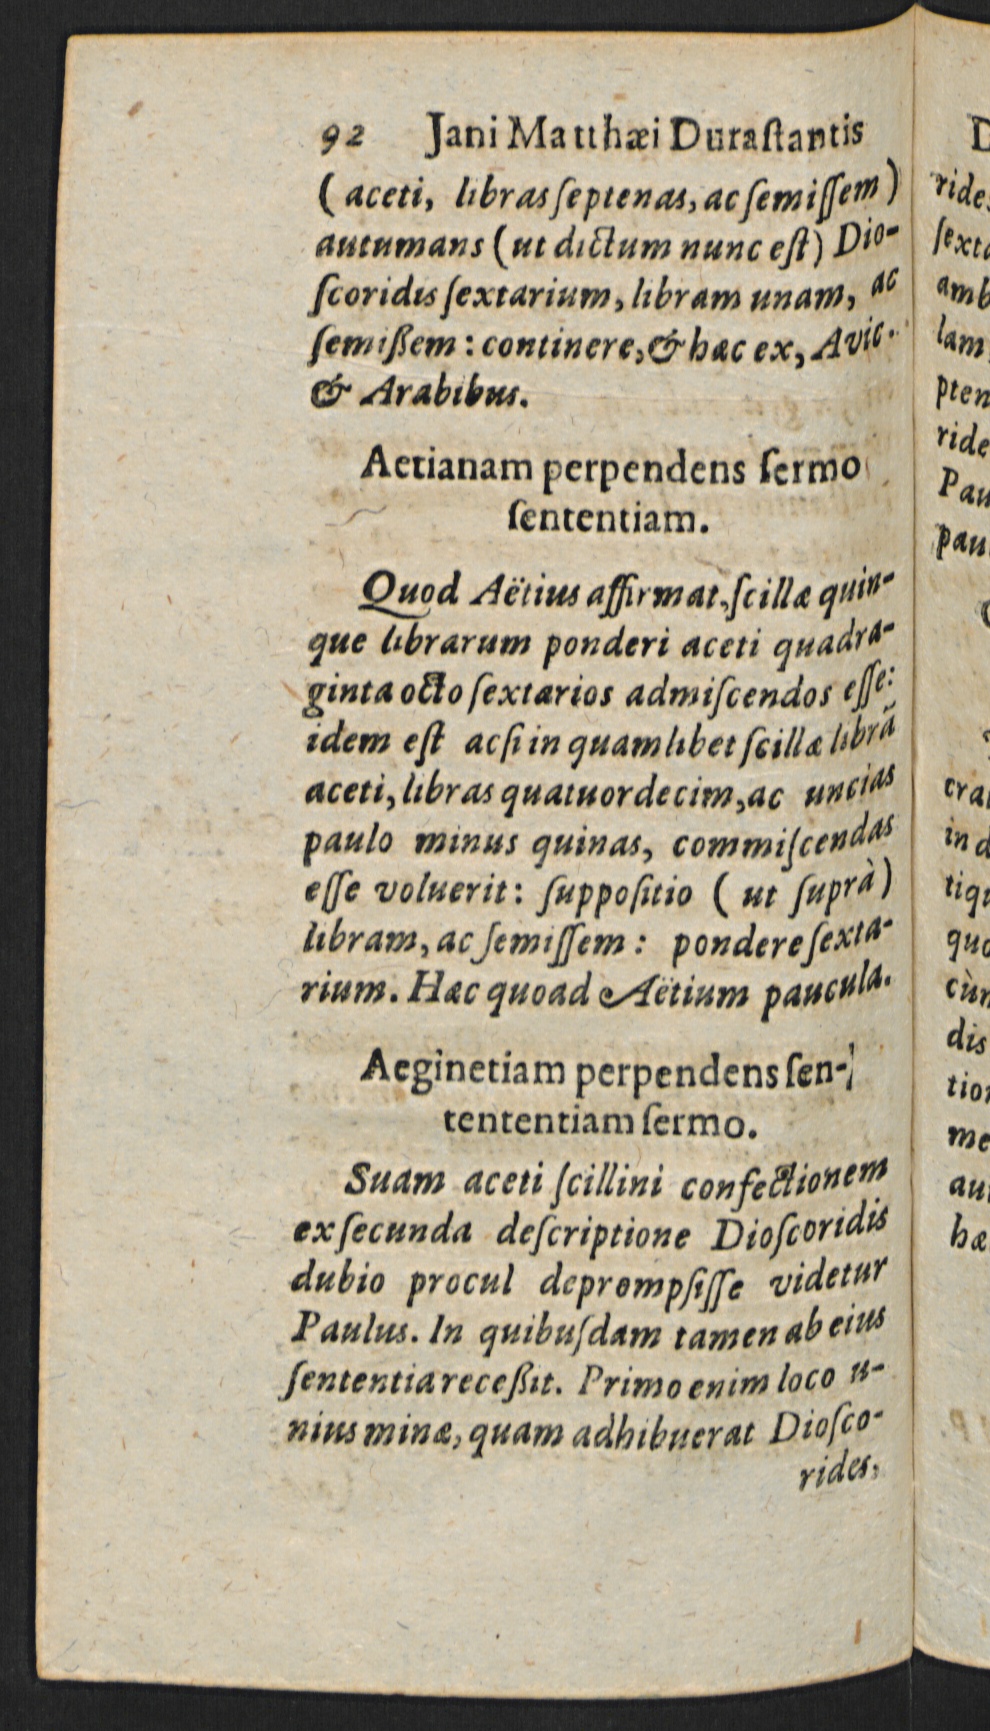 92 Jani Matthæi Duraſtantis
( aceti, libras ſeptenas, ac ſemiſſem )
autumans (ut dictum nunc eſt) Dio-
ſcoridis ſextarium, libram unam, ac
ſemißem : continere, & hæc ex, Avic.
& Arabibus.
Aetianam perpendens ſermo
ſententiam.
Quod Aëtius affirmat, ſcillæ quin-
que librarum ponderi aceti quadra-
ginta octo ſextarios admiſcendos eſſe:
idem eſt acſi in quamlibet ſcillæ librã
aceti, libras quatuordecim, ac uncias
paulo minus quinas, commiſcendas
eſſe voluerit: ſuppoſitio ( ut ſuprà )
libram, ac ſemiſſem : pondere ſexta-
rium. Hæc quoad Aëtium paucula.
Aeginetiam perpendens ſen-
tententiam ſermo.
Suam aceti ſcillini confectionem
ex ſecunda deſcriptione Dioſcoridis
dubio procul deprompſiſſe videtur
Paulus. In quibuſdam tamen ab eius
ſententia receßit. Primo enim loco u-
nius minæ, quam adhibuerat Dioſco-
rides,
rides
ſexta
amb
lam
pten
ride
Pau
pau
cra
in d
tiqu
quo
cùm
dis
tion
me
au
hæ